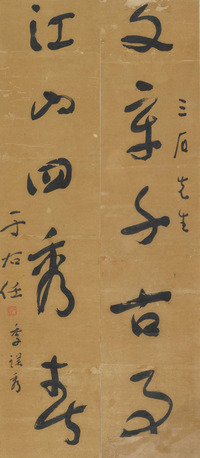 三石先生
文章千古事
江山四秀春
于右任
季誤秀